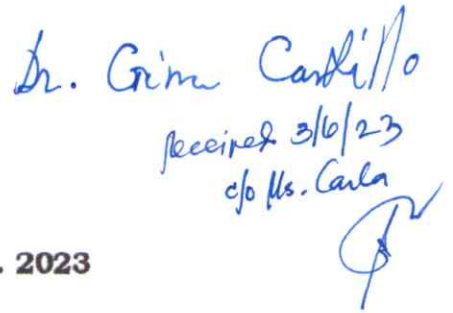 Dr. Gina Castillo
received 3/6/23
c/o Ms. Carla
. 2023